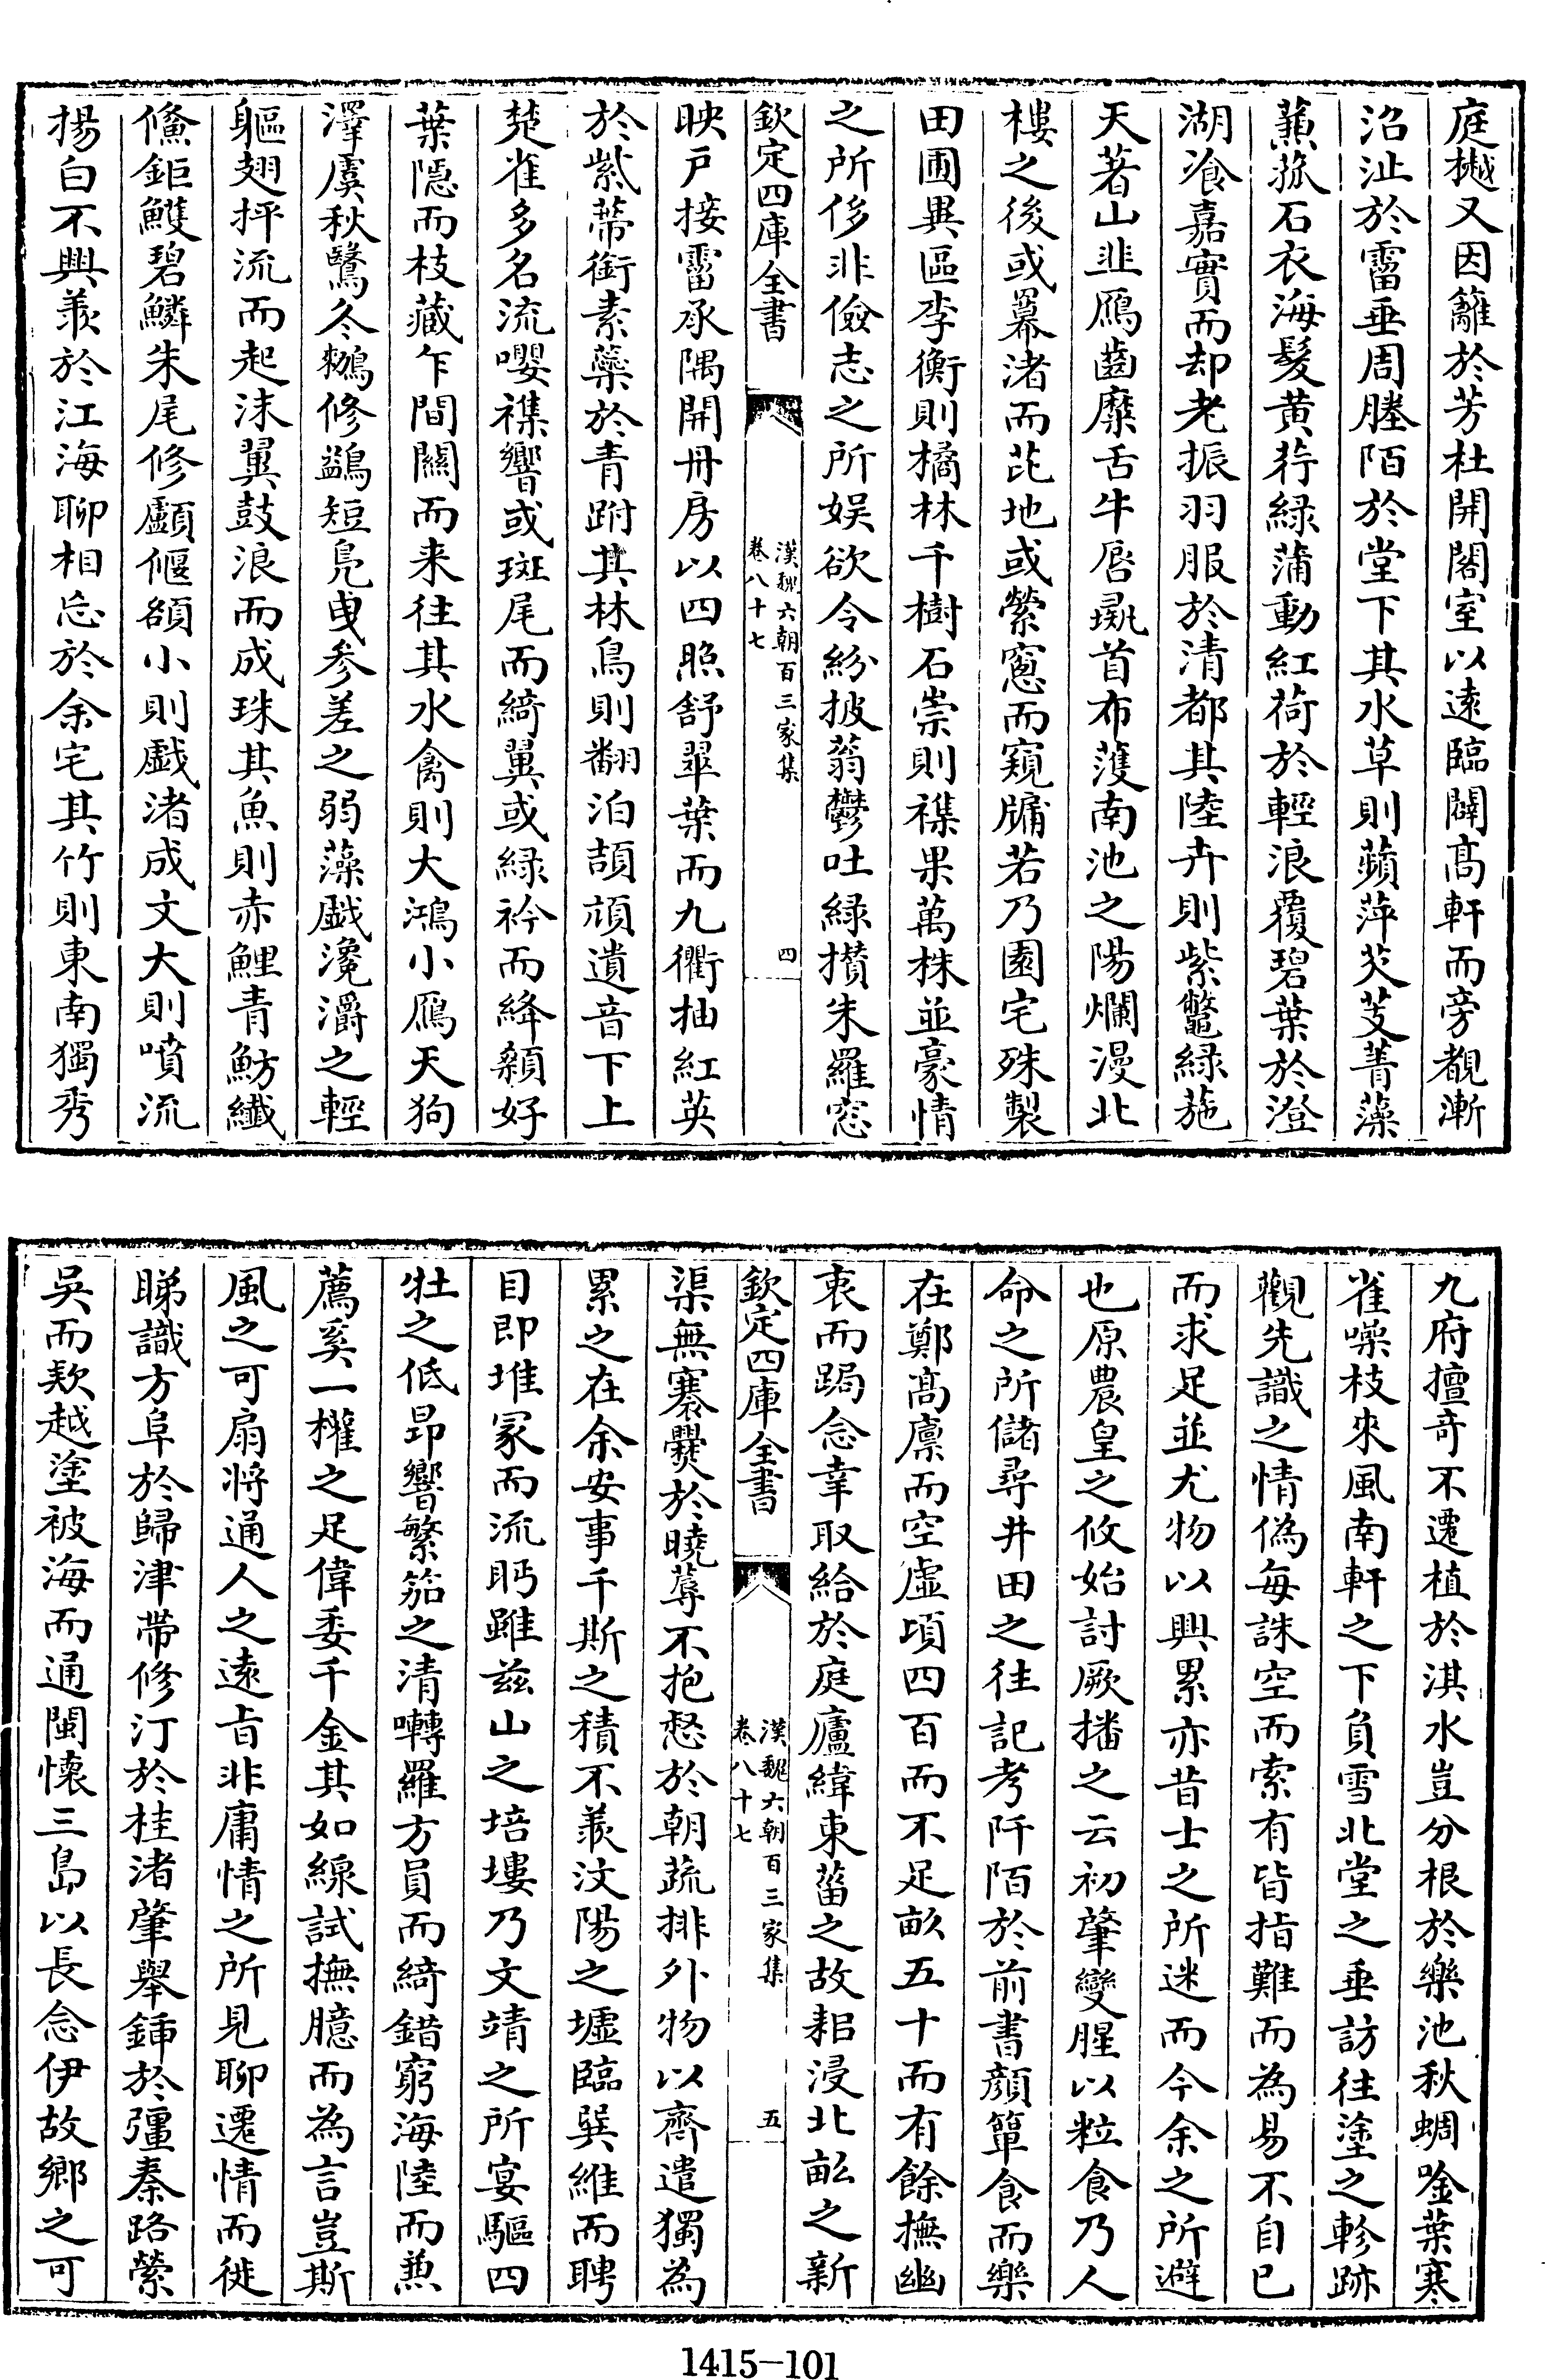 庭樾又因籬於芳杜開閣室以遠臨闢髙軒而旁覩漸
沼沚於霤垂周塍陌於堂下其水草則蘋萍芡芰菁藻
蒹菰石衣海髮黄荇緑蒲動紅荷於輕浪覆碧葉於澄
湖飡嘉實而却老振羽服於清都其陸卉則紫虌緑葹
天著山韭鴈齒麋舌牛唇彘首布濩南池之陽爛漫北
樓之後或幕渚而芘地或縈窻而窺牖若乃園宅殊製
田圃異區李衡則橘林千樹石崇則襍果萬株並豪情
之所侈非儉志之所娱欲令紛披蓊鬱吐緑攅朱羅窓
欽定四庫全書
漢魏六朝百三家集
卷八十七
四
映戸接霤承隅開丹房以四照舒翠葉而九衢抽紅英
於紫蔕銜素蘂於青跗其林鳥則翻泊頡頏遺音下上
楚雀多名流嚶襍響或斑尾而綺翼或緑衿而絳顙好
葉隠而枝藏乍間關而来徃其水禽則大鴻小鴈天狗
澤虞秋鷖冬鶿修鷁短鳧曵參差之弱藻戲瀺灂之輕
軀翅抨流而起沫翼鼓浪而成珠其魚則赤鯉青魴纖
鯈鉅鱯碧鱗朱尾修顱偃額小則戲渚成文大則噴流
揚白不興羨於江海聊相忘於余宅其竹則東南獨秀
九府擅竒不遷植於淇水豈分根於樂池秋蜩唫葉寒
雀噪枝來風南軒之下負雪北堂之垂訪往塗之軫跡
觀先識之情偽每誅空而索有皆指難而為易不自已
而求足並尤物以興累亦昔士之所迷而今余之所避
也原農皇之攸始討厥播之云初肇變腥以粒食乃人
命之所儲尋井田之往記考阡陌於前書顔簞食而樂
在鄭髙廪而空虚頃四百而不足畝五十而有餘撫幽
衷而跼念幸取給於庭廬緯東菑之故耜浸北畝之新
欽定四庫全書
漢魏六朝百三家集
卷八十七
五
渠無褰爨於曉蓐不抱惄於朝蔬排外物以齊遣獨為
累之在余安事千斯之積不羨汶陽之墟臨巽維而騁
目即堆冢而流眄雖兹山之培塿乃文靖之所宴驅四
牡之低昻響繁笳之清囀羅方員而綺錯窮海陸而兼
薦奚一權之足偉委千金其如線試撫臆而為言豈斯
風之可扇將通人之遠㫖非庸情之所見聊遷情而徙
睇識方阜於歸津帯修汀於桂渚肇舉鍤於彊秦路縈
吳而欵越塗被海而通閩懐三島以長念伊故鄉之可
1415-101